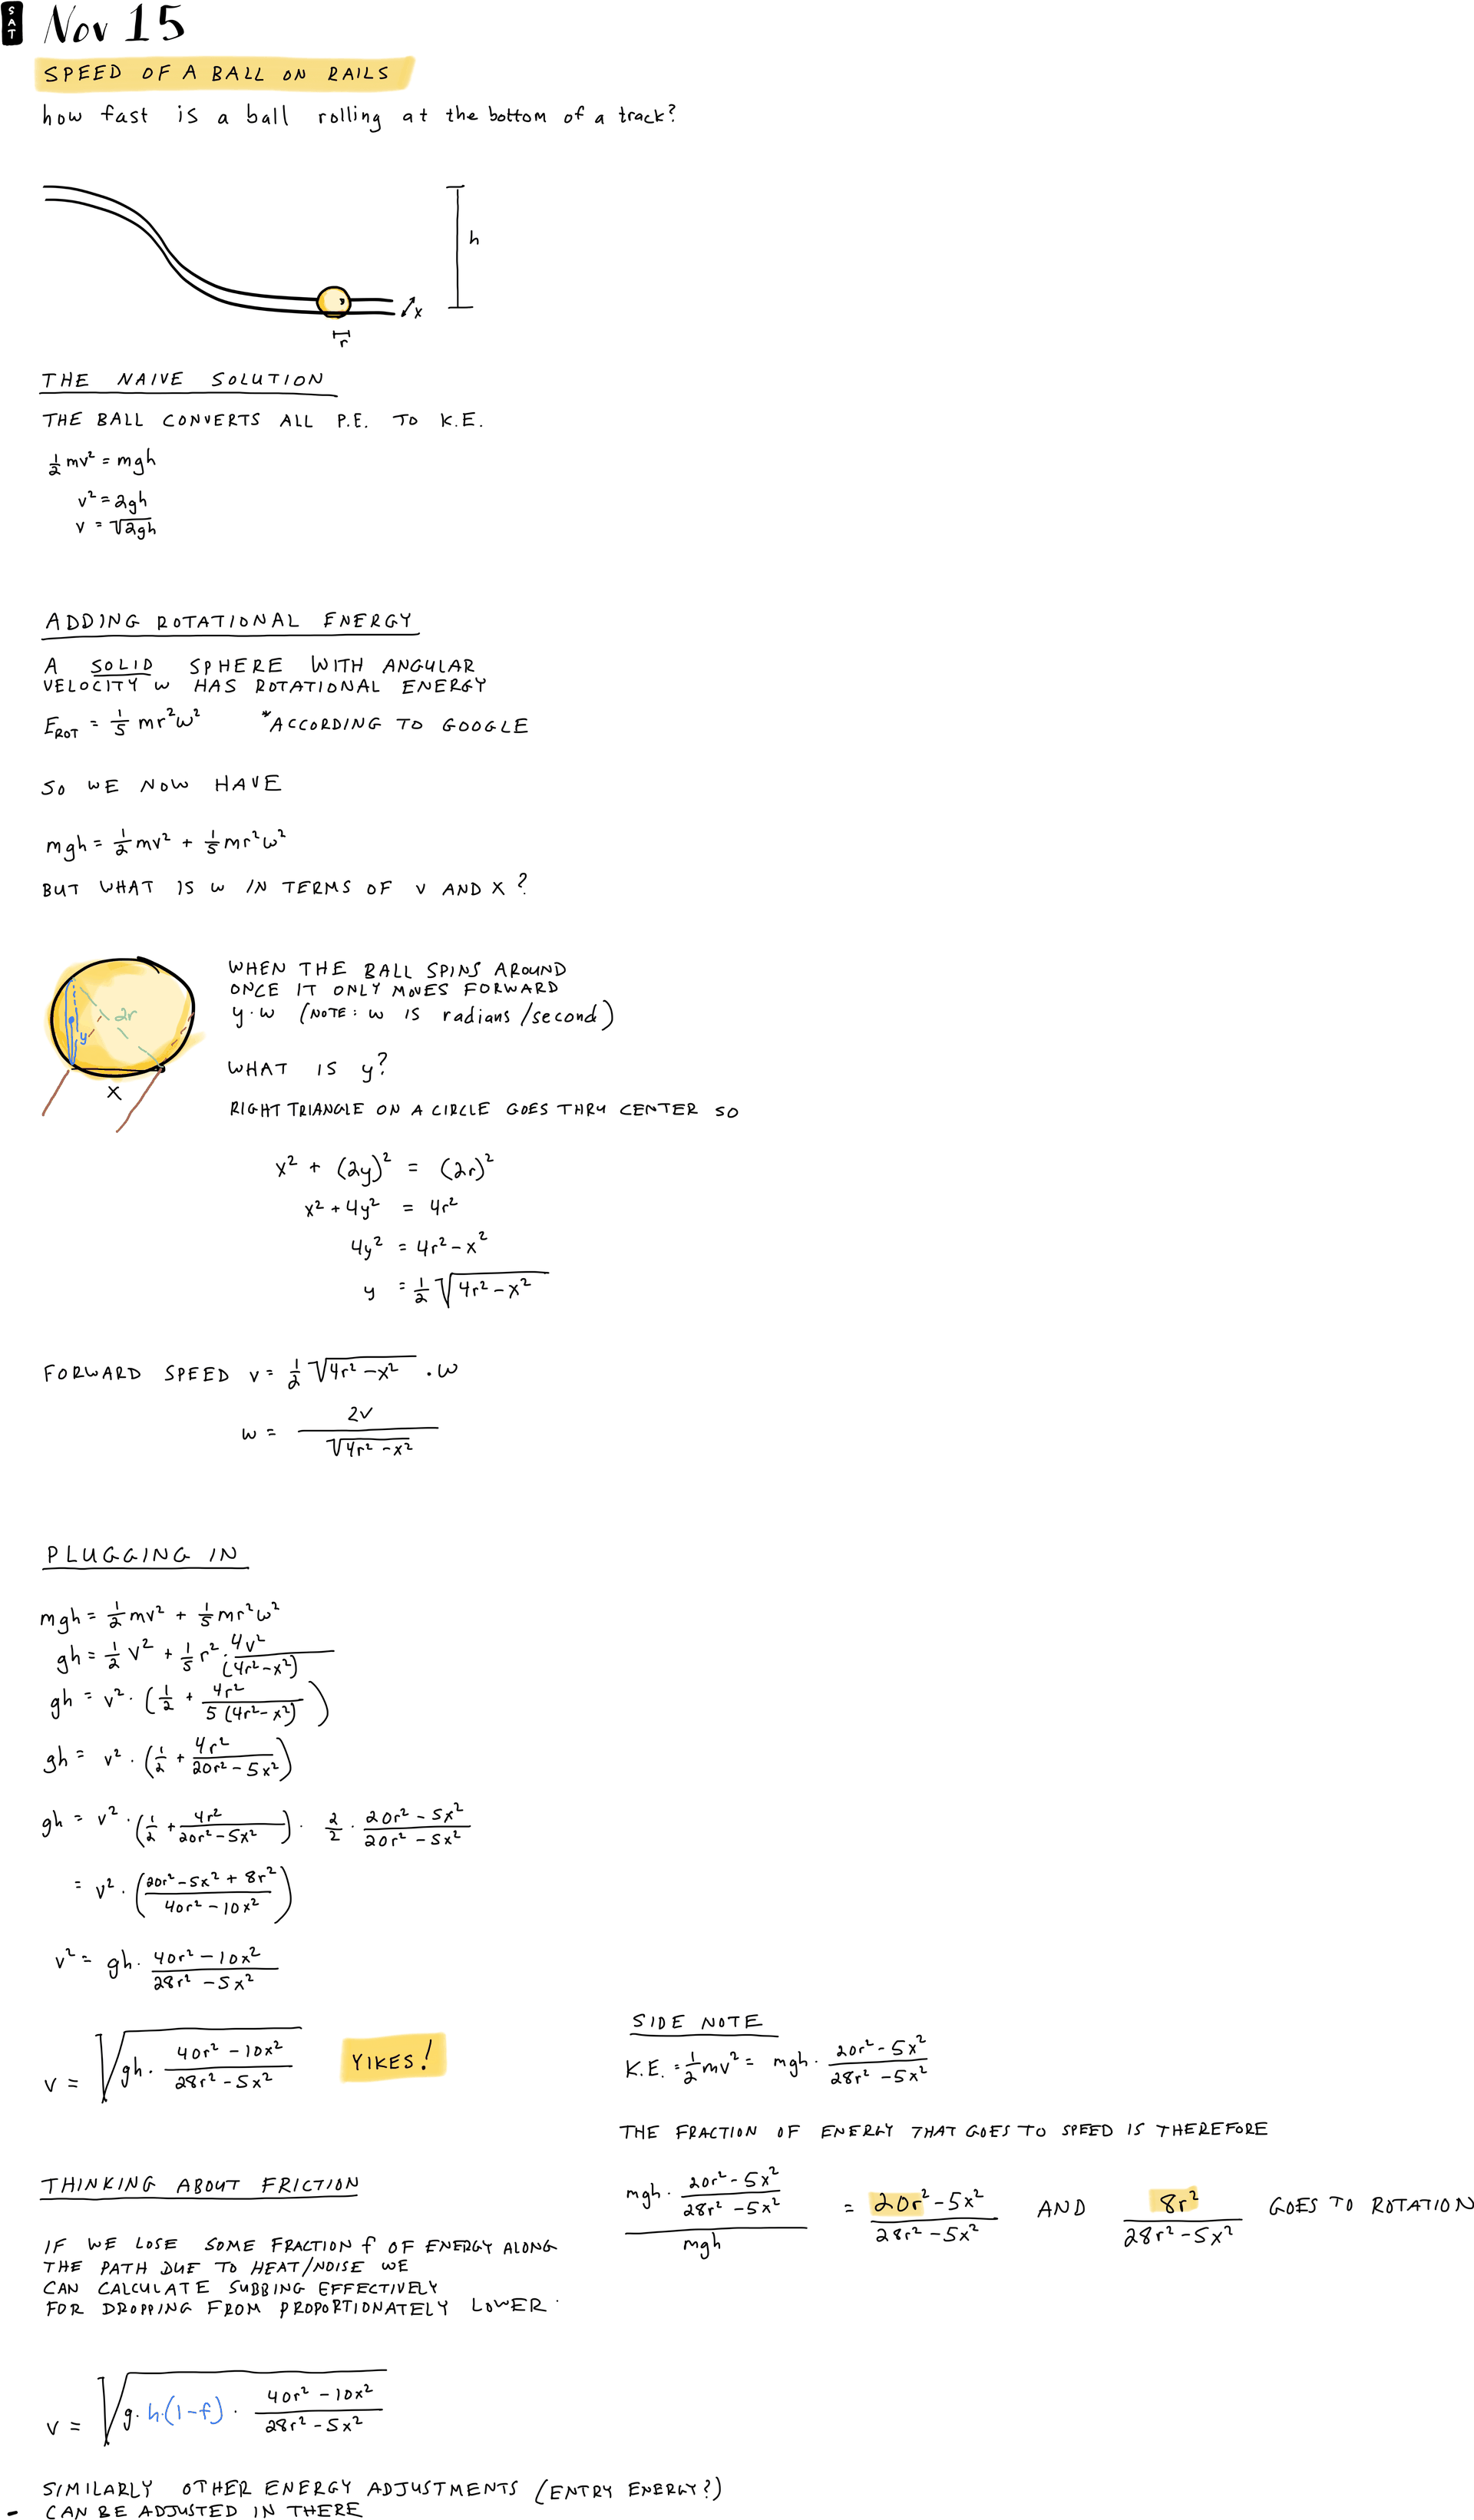 SAT
Nov 15
SPEED OF A BALL ON RAILS
how fast is a ball rolling at the bottom of a track?
h
x
r
THE NAIVE SOLUTION
THE BALL CONVERTS ALL P.E. TO K.E.
½mv² = mgh
v² = 2gh
v = √(2gh)
ADDING ROTATIONAL ENERGY
A SOLID SPHERE WITH ANGULAR
VELOCITY ω HAS ROTATIONAL ENERGY
E_ROT = 1/5 mr²ω² *ACCORDING TO GOOGLE
SO WE NOW HAVE
mgh = ½mv² + 1/5 mr²ω²
BUT WHAT IS ω IN TERMS OF v AND x?
2r
y
x
WHEN THE BALL SPINS AROUND
ONCE IT ONLY MOVES FORWARD
y·ω (NOTE: ω IS radians/second)
WHAT IS y?
RIGHT TRIANGLE ON A CIRCLE GOES THRU CENTER SO
x² + (2y)² = (2r)²
x² + 4y² = 4r²
4y² = 4r² - x²
y = ½ √(4r² - x²)
FORWARD SPEED v = ½ √(4r² - x²) · ω
ω = 2v / √(4r² - x²)
PLUGGING IN
mgh = ½mv² + 1/5 mr²ω²
gh = ½v² + 1/5 r² · 4v² / (4r² - x²)
gh = v² · (½ + 4r² / 5(4r² - x²))
gh = v² · (½ + 4r² / (20r² - 5x²))
gh = v² · (½ + 4r² / (20r² - 5x²)) · 2/2 · (20r² - 5x²) / (20r² - 5x²)
= v² · ((20r² - 5x² + 8r²) / (40r² - 10x²))
v² = gh · (40r² - 10x²) / (28r² - 5x²)
v = √(gh · (40r² - 10x²) / (28r² - 5x²)) YIKES!
SIDE NOTE
K.E. = ½mv² = mgh · (20r² - 5x²) / (28r² - 5x²)
THE FRACTION OF ENERGY THAT GOES TO SPEED IS THEREFORE
(mgh · (20r² - 5x²) / (28r² - 5x²)) / mgh = (20r² - 5x²) / (28r² - 5x²) AND 8r² / (28r² - 5x²) GOES TO ROTATION
THINKING ABOUT FRICTION
IF WE LOSE SOME FRACTION f OF ENERGY ALONG
THE PATH DUE TO HEAT/NOISE WE
CAN CALCULATE SUBBING EFFECTIVELY
FOR DROPPING FROM PROPORTIONATELY LOWER.
v = √(g · h·(1-f) · (40r² - 10x²) / (28r² - 5x²))
SIMILARLY OTHER ENERGY ADJUSTMENTS (ENTRY ENERGY?)
- CAN BE ADJUSTED IN THERE